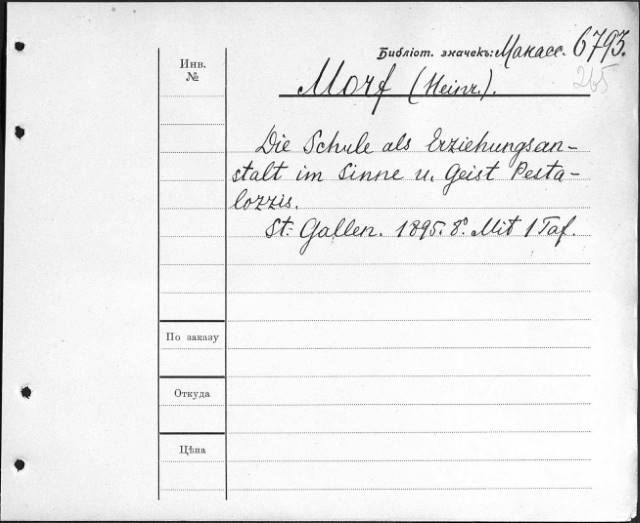 Библіот. значекъ: Макасс. 6793.
265
Инв.
№
Morf (Heinr.).
Die Schule als Erziehungsan-
stalt im Sinne u. Geist Pesta-
lozzis.
St. Gallen. 1895. 8°. Mit 1 Taf.
По заказу
Откуда
Цѣна